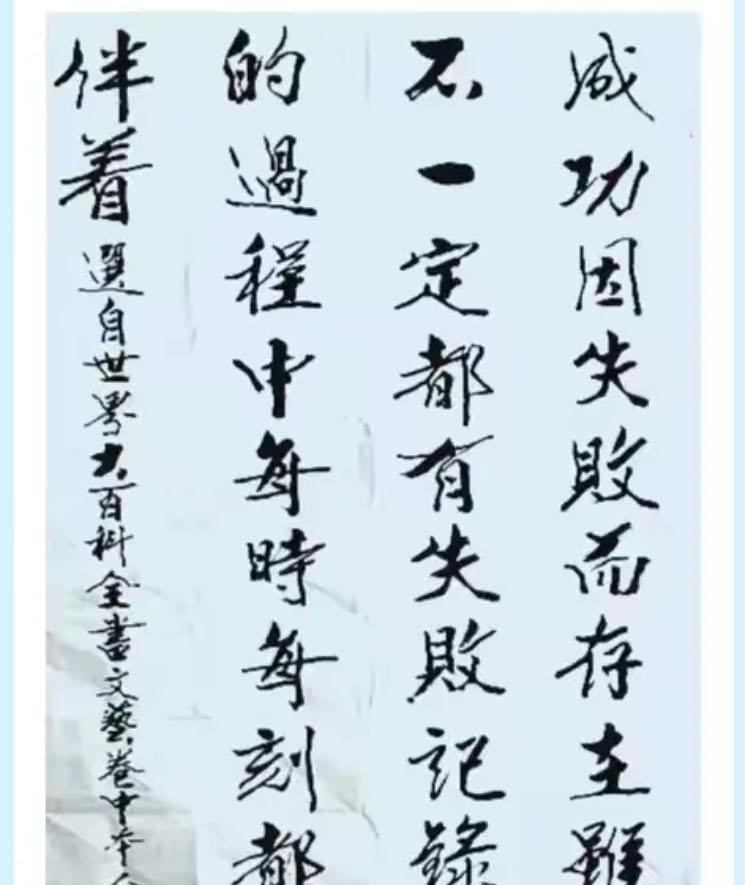 成功因失敗而存在雖
不一定都有失敗記錄
的過程中每時每刻都
伴着
選自世界大百科全書文藝卷中華